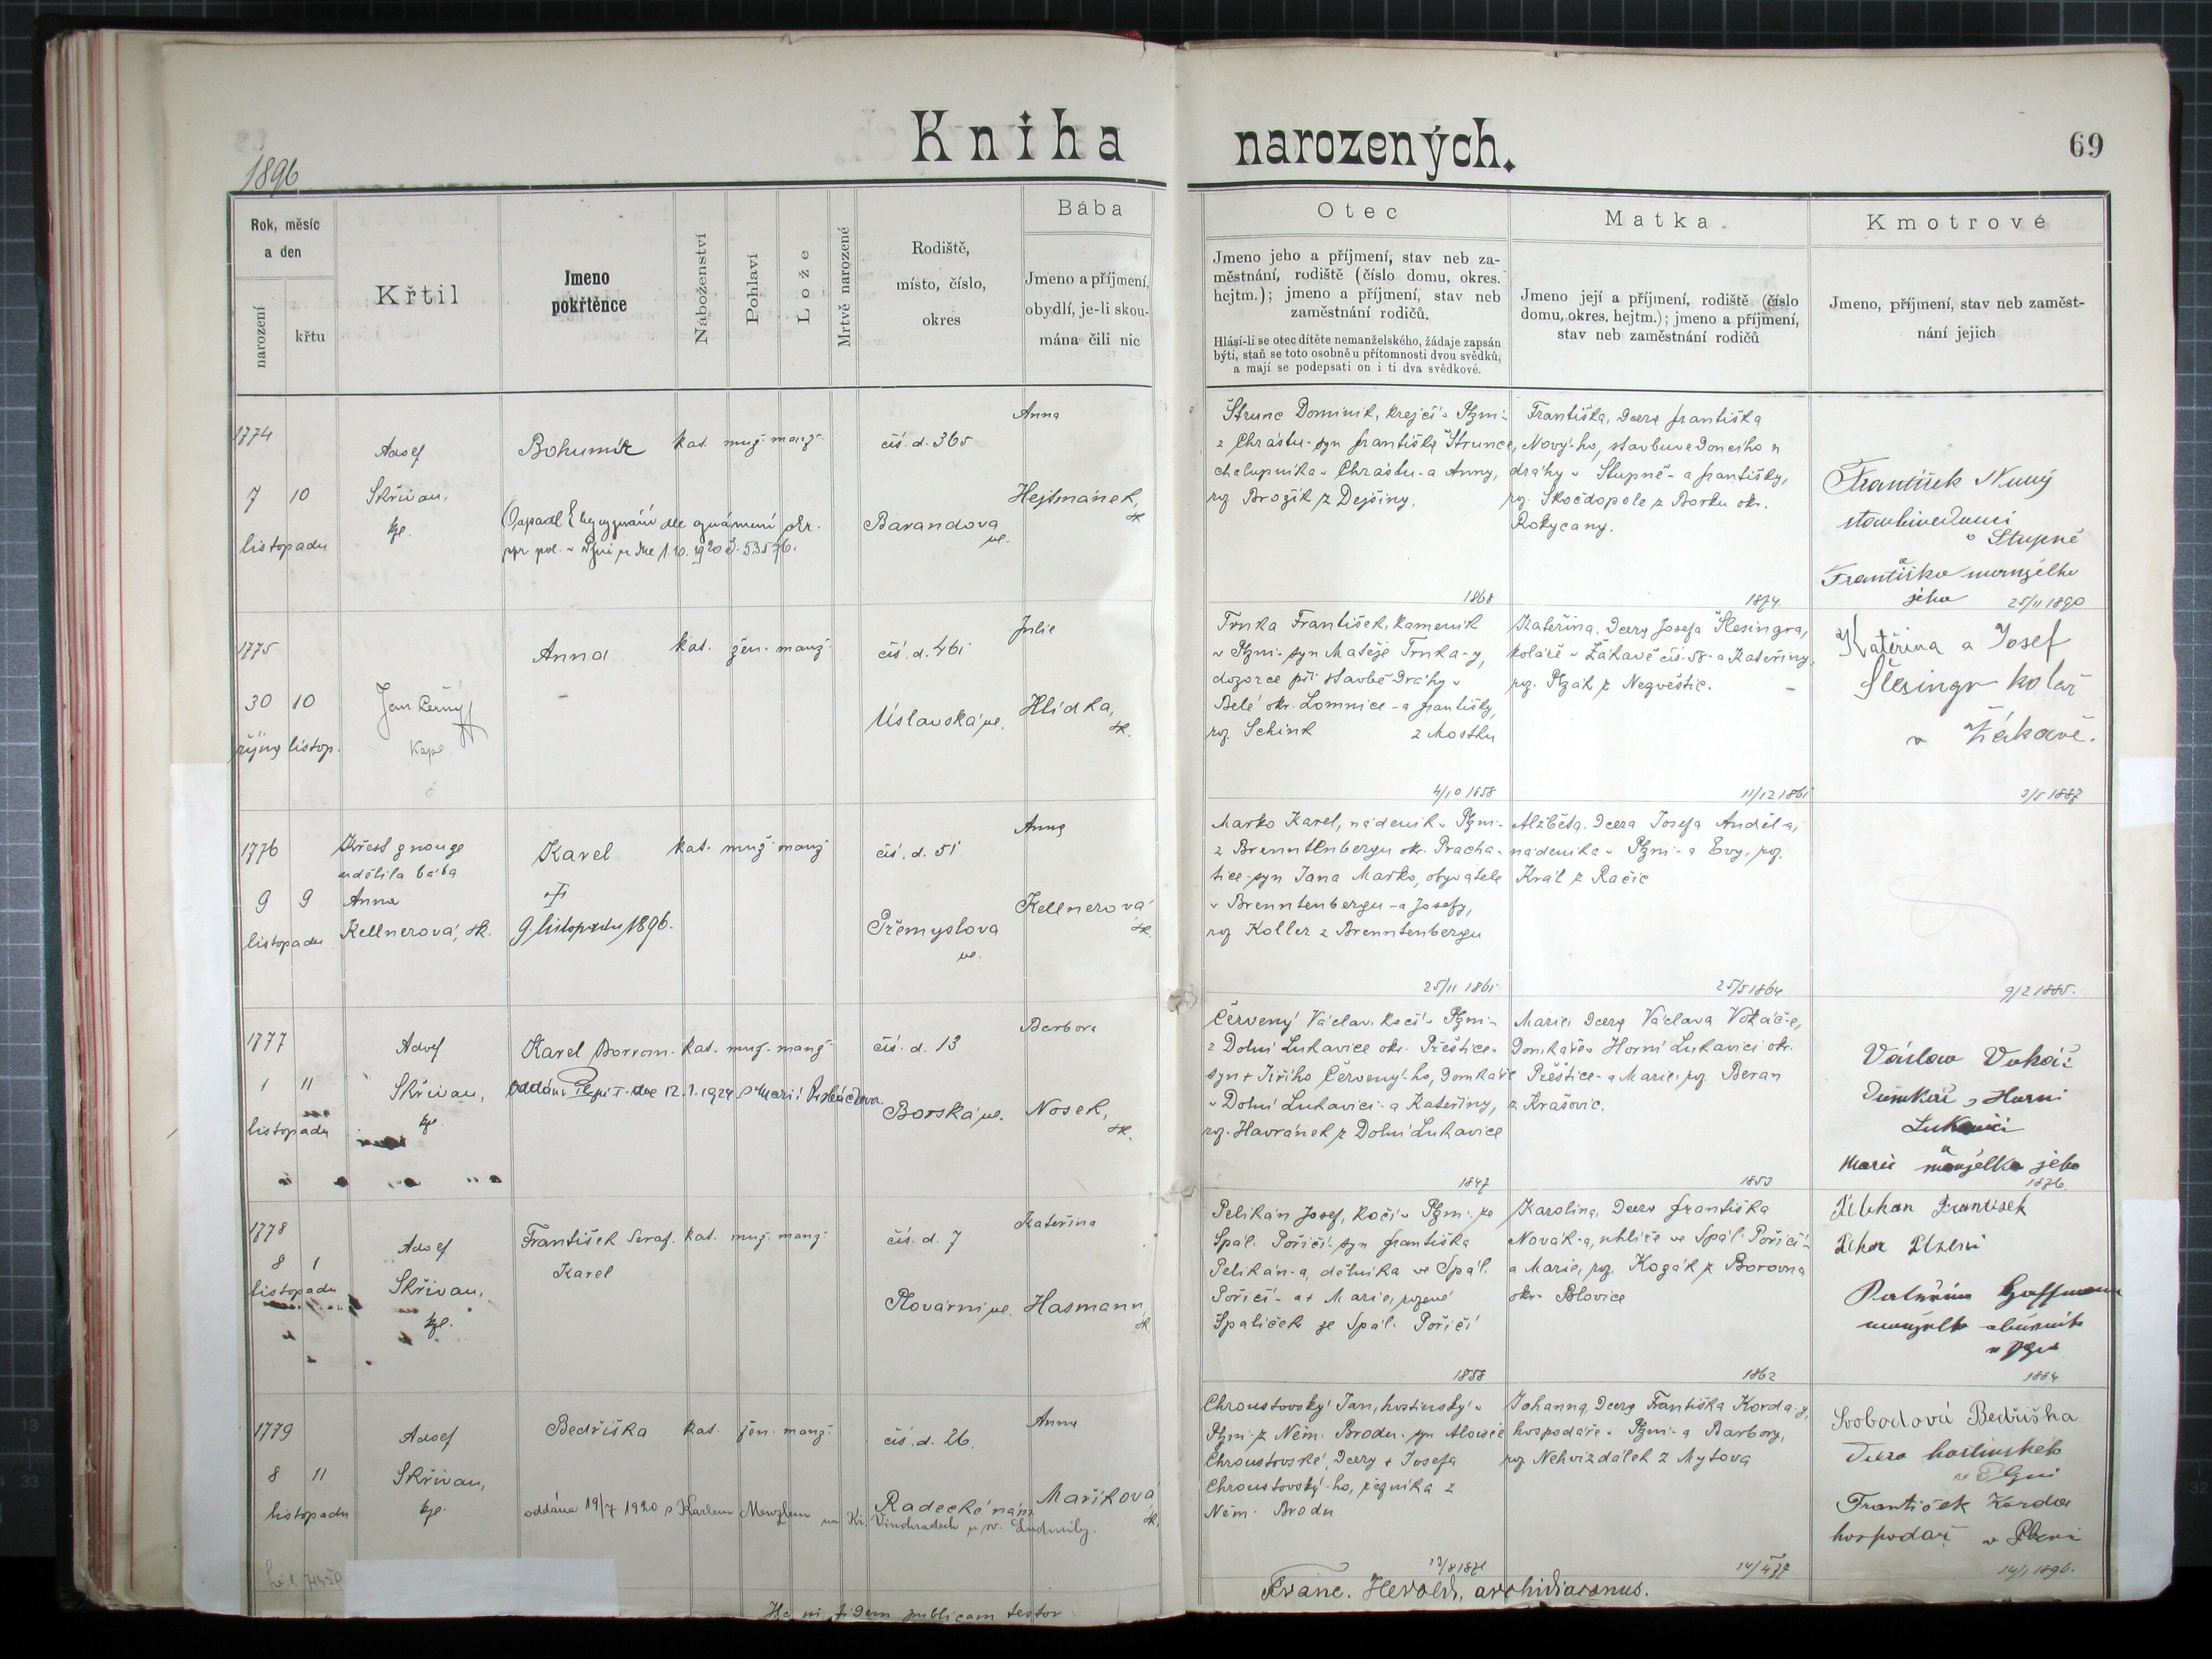 Kniha narozených.
69
1896
Rok, měsíc
a den
narození
křtu
Křtil
Jmeno
pokřtěnce
Náboženství
Pohlaví
Lože
Mrtvě narozené
Rodiště,
místo, číslo,
okres
Bába
Jmeno a příjmení,
obydlí, je-li skou-
mána čili nic
Otec
Jmeno jeho a příjmení, stav neb za-
městnání, rodiště (číslo domu, okres.
hejtm.); jmeno a příjmení, stav neb
zaměstnání rodičů.
Hlásí-li se otec dítěte nemanželského, žádaje zapsán
býti, staň se toto osobně u přítomnosti dvou svědků,
a mají se podepsati on i ti dva svědkové.
Matka.
Jmeno její a příjmení, rodiště (číslo
domu, okres. hejtm.); jmeno a příjmení,
stav neb zaměstnání rodičů
Kmotrové
Jmeno, příjmení, stav neb zaměst-
nání jejich
1774
7 10
listopadu
Adolf
Skřivan,
kpl.
Bohumír
kat. muž. manž.
čís. d. 365
Barandova
ul.
Anna
Hejtmánek,
zk.
Štrunc Dominik, krejčí v Plzni-
z Chrástu- syn Františka Štrunce,
chalupníka v Chrástu- a Anny,
roz. Brožík z Dejšiny.
1868
Františka, dcera Františka
Nový-ho, stavbuvedoucího u
dráhy v Stupně- a Františky,
roz. Skočdopole z Borku okr.
Rokycany.
1874
František Nový
stavbivedoucí
v Stupně
a
Františka manželka
jeho
25/11 1890
1775
30 10
října listop.
Jan Černý
Kapl.
Anna
kat. žen. manž.
čís. d. 461
Úslavská ul.
Julie
Hlídka,
zk.
Trnka František, kameník
v Plzni- syn Matěje Trnka-y,
dozorce při stavbě dráhy v
Belé okr. Lomnice- a Františky,
roz. Schink z Mostku
4/10 1858
Kateřina, dcera Josefa Šlesingra,
koláře v Žákavě čís. 58- a Kateřiny,
roz. Plzák z Nezvěstic.
11/12 1861
Kateřina a Josef
Šlesingr kolař
v Žákavě.
2/5 1887
1776
9 9
listopadu
Křest z nouze
udělila bába
Anna
Kellnerová, zk.
Karel
9 listopadu 1896.
kat. muž. manž.
čís. d. 51
Přemyslova
ul.
Anna
Kellnerová
zk.
Marko Karel, nádeník v Plzni-
z Brenntenbergu okr. Pracha-
tice- syn Jana Marko, obyvatele
v Brenntenbergu- a Josefy,
roz. Koller z Brenntenbergu
25/11 1861
Alžběta, dcera Josefa Anděl-a,
nádeníka v Plzni- a Evy, roz.
Král z Račic
25/5 1864
9/2 1885.
1777
1 11
listopadu
Adolf
Skřivan,
kpl.
Karel Borrom.
kat. muž. manž.
čís. d. 13
Borská ul.
Barbora
Nosek,
zk.
Červený Václav, kočí v Plzni-
z Dolní Lukavice okr. Přeštice-
syn + Jiřího Červený-ho, domkáře
v Dolní Lukavici- a Kateřiny,
roz. Havránek z Dolní Lukavice
1847
Marie, dcera Václava Vokáč-e,
domkáře v Horní Lukavici okr.
Přeštice- a Marie, roz. Beran
z Krašovic.
1853
Václav Vokáč
Domkář v Horní
Lukavici
a
Marie manželka jeho
1876.
1778
8 1
listopadu
Adolf
Skřivan,
kpl.
František Seraf.
Karel
kat. muž. manž.
čís. d. 7
Plovární ul.
Kateřina
Hasmann,
zk.
Pelikán Josef, kočí v Plzni- ze
Spál. Poříčí- syn Františka
Pelikán-a, dělníka ve Spál.
Poříčí- a + Marie, rozené
Špaliček ze Spál. Poříčí
1858
Karolina, dcera Františka
Novák-a, uhlíře ve Spál. Poříčí-
a Marie, roz. Kozák z Borovna
okr. Blovice
1862
František
1884
1779
8 11
listopadu
Adolf
Skřivan,
kpl.
Bedřiška
kat. žen. manž.
oddána 19/7 1920 s Karlem Menzlem na Kr. Vinohradech u sv. Ludmily.
čís. d. 26.
Radeckého nám.
Anna
Maříková
zk.
Chroustovský Jan, hostinský v
Plzni- z Něm. Brodu- syn Aloisie
Chroustovské, dcery + Josefa
Chroustovský-ho, řezníka z
Něm. Brodu
13/8 1871
Johanna, dcera Františka Korda-y,
hospodáře v Plzni- a Barbory,
roz. Nehvizdálek z Mytova
Svobodová Bedřiška
dcera hostinského
v Plzni
František Korda
hospodář v Plzni
14/1 1896.
fidem publicam testor
Franc. Herold, archidiaconus.